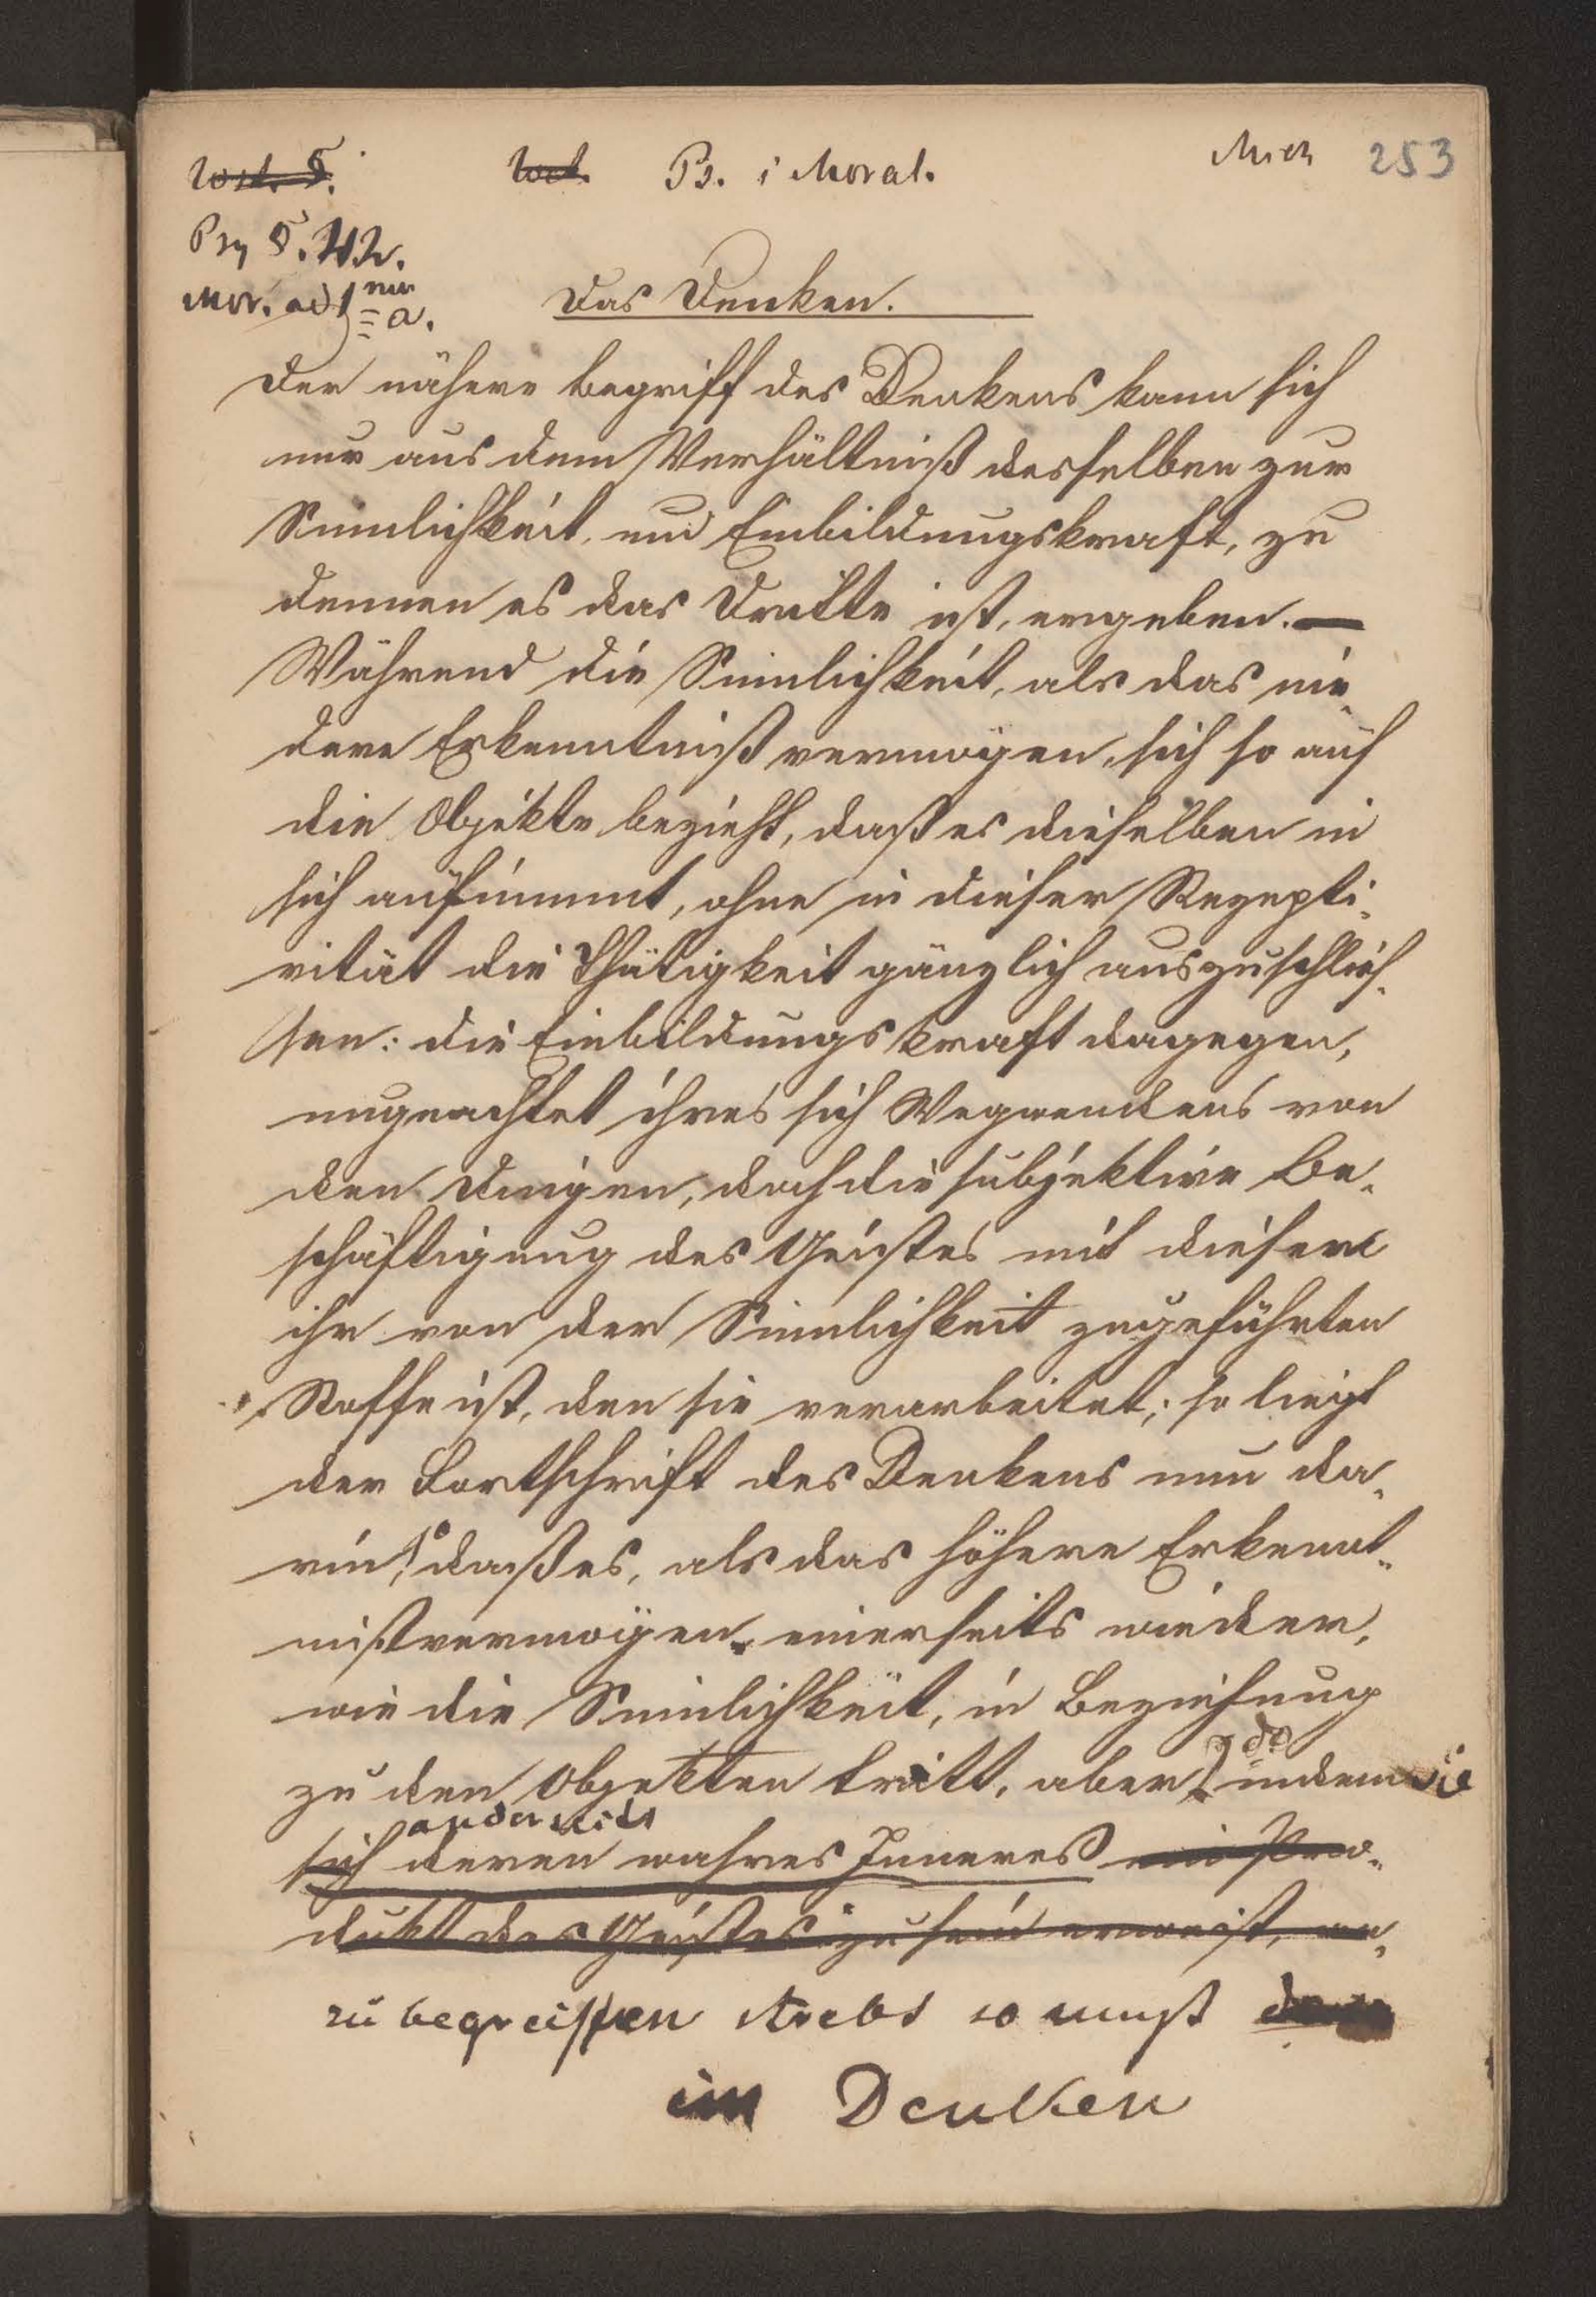 Ps. i Moral.
Mich 253
Psy 5.
Mor. ad 1 = a.
Das Denken.
Der nähere Begriff des Denkens kann sich
nur aus dem Verhältniß desselben zur
Sinnlichkeit, und Einbildungskraft, zu
dennen es das Dritte ist, ergeben. —
Während die Sinnlichkeit, als das nie-
dere Erkenntnißvermögen, sich so auf
die Objekte bezieht, daß es dieselben in
sich aufnimmt, ohne in dieser Rezepti-
vität die Thätigkeit gänzlich auszuschließ-
sen: die Einbildungskraft dagegen,
ungeachtet ihres sich Wegwendens von
den Dingen, doch die subjektive Be-
schäftigung des Geistes mit diesem
ihr von der Sinnlichkeit zugeführten
Stoffe ist, den sie verarbeitet; so liegt
der Fortschritt des Denkens nun da-
rin, 1º daß es, als das höhere Erkennt-
nißvermögen einerseits wieder,
wie die Sinnlichkeit, in Beziehung
zu den Objekten tritt, aber 2do indem sie
anderseits
sich deren wahres Inneres ein Pro-
dukt des Geistes zu sein erweist,
zu begreiffen strebt so muß
im Denken